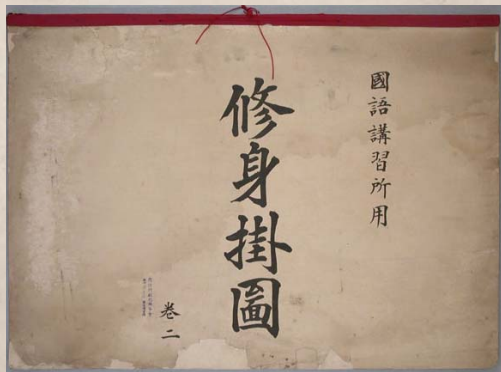 國語講習所用
修身掛圖
卷二